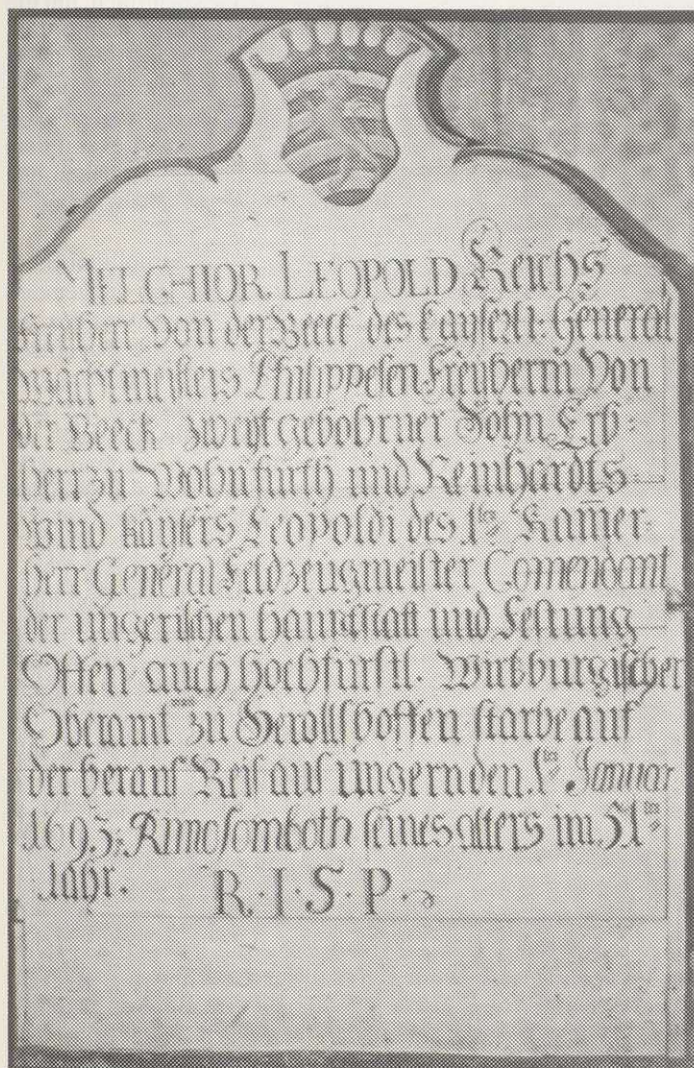 MELCHIOR LEOPOLD Reichs
Freÿherr Von der Beeck des kaÿserli: General
wachtmeisters Philippesen Freÿherrn Von
der Beeck zweÿt gebohrner Sohn Erb-
herr zu Wohnfurth und Reinhardts-
wind kaÿsers Leopoldi des 1ten Kam̄er-
herr General Feldzeugmeister Comendant
der ungerischen haubtstatt und Festung
Offen auch hochfürstl. Wirtzburgischer
Oberamtman zu Gerolltzhoffen starbe auf
der herauf Reis aus ungern den 1ten Januar
1693 seines alters im 51ten
Jahr. R·I·S·P·